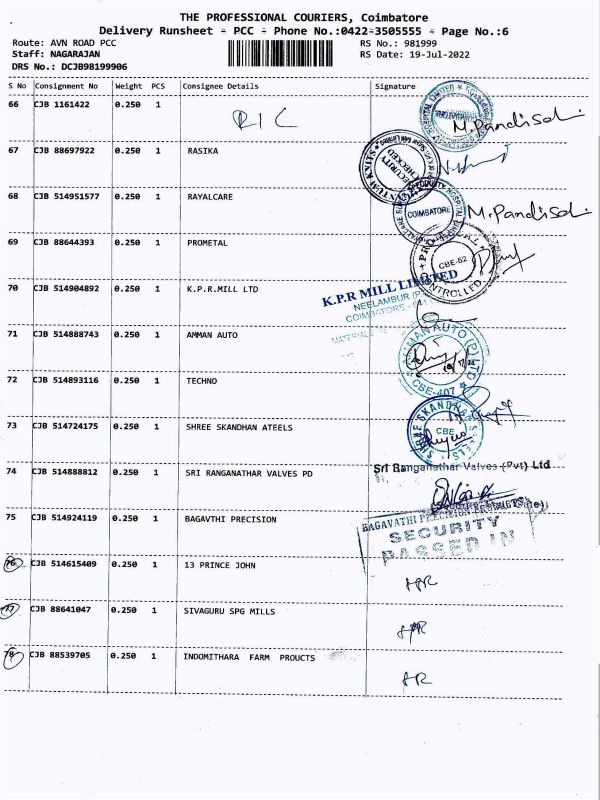 THE PROFESSIONAL COURIERS, Coimbatore
Delivery Runsheet - PCC - Phone No.:0422-3505555 - Page No.:6
Route: AVN ROAD PCC RS No.: 981999
Staff: NAGARAJAN RS Date: 19-Jul-2022
DRS No.: DCJB98199906
S No Consignment No Weight PCS Consignee Details Signature
66 CJB 1161422 0.250 1 RIC M.Pandisel
67 CJB 88697922 0.250 1 RASIKA SECURITY CHECKED
68 CJB 514951577 0.250 1 RAYALCARE COIMBATORE M.Pandisel
69 CJB 88644393 0.250 1 PROMETAL CBE-62
70 CJB 514904892 0.250 1 K.P.R.MILL LTD K.P.R MILL LIMITED
NEELAMBUR
COIMBATORE
71 CJB 514888743 0.250 1 AMMAN AUTO AMMAN AUTO (P) LTD CBE-407
72 CJB 514893116 0.250 1 TECHNO
73 CJB 514724175 0.250 1 SHREE SKANDHAN ATEELS CBE
74 CJB 514888812 0.250 1 SRI RANGANATHAR VALVES PD Sri Ranganathar Valves (Pvt) Ltd
75 CJB 514924119 0.250 1 BAGAVTHI PRECISION BAGAVATHI PRECISION
SECURITY
PASSED IN
76 CJB 514615409 0.250 1 13 PRINCE JOHN
77 CJB 88641047 0.250 1 SIVAGURU SPG MILLS
78 CJB 88539705 0.250 1 INDOMITHARA FARM PROUCTS